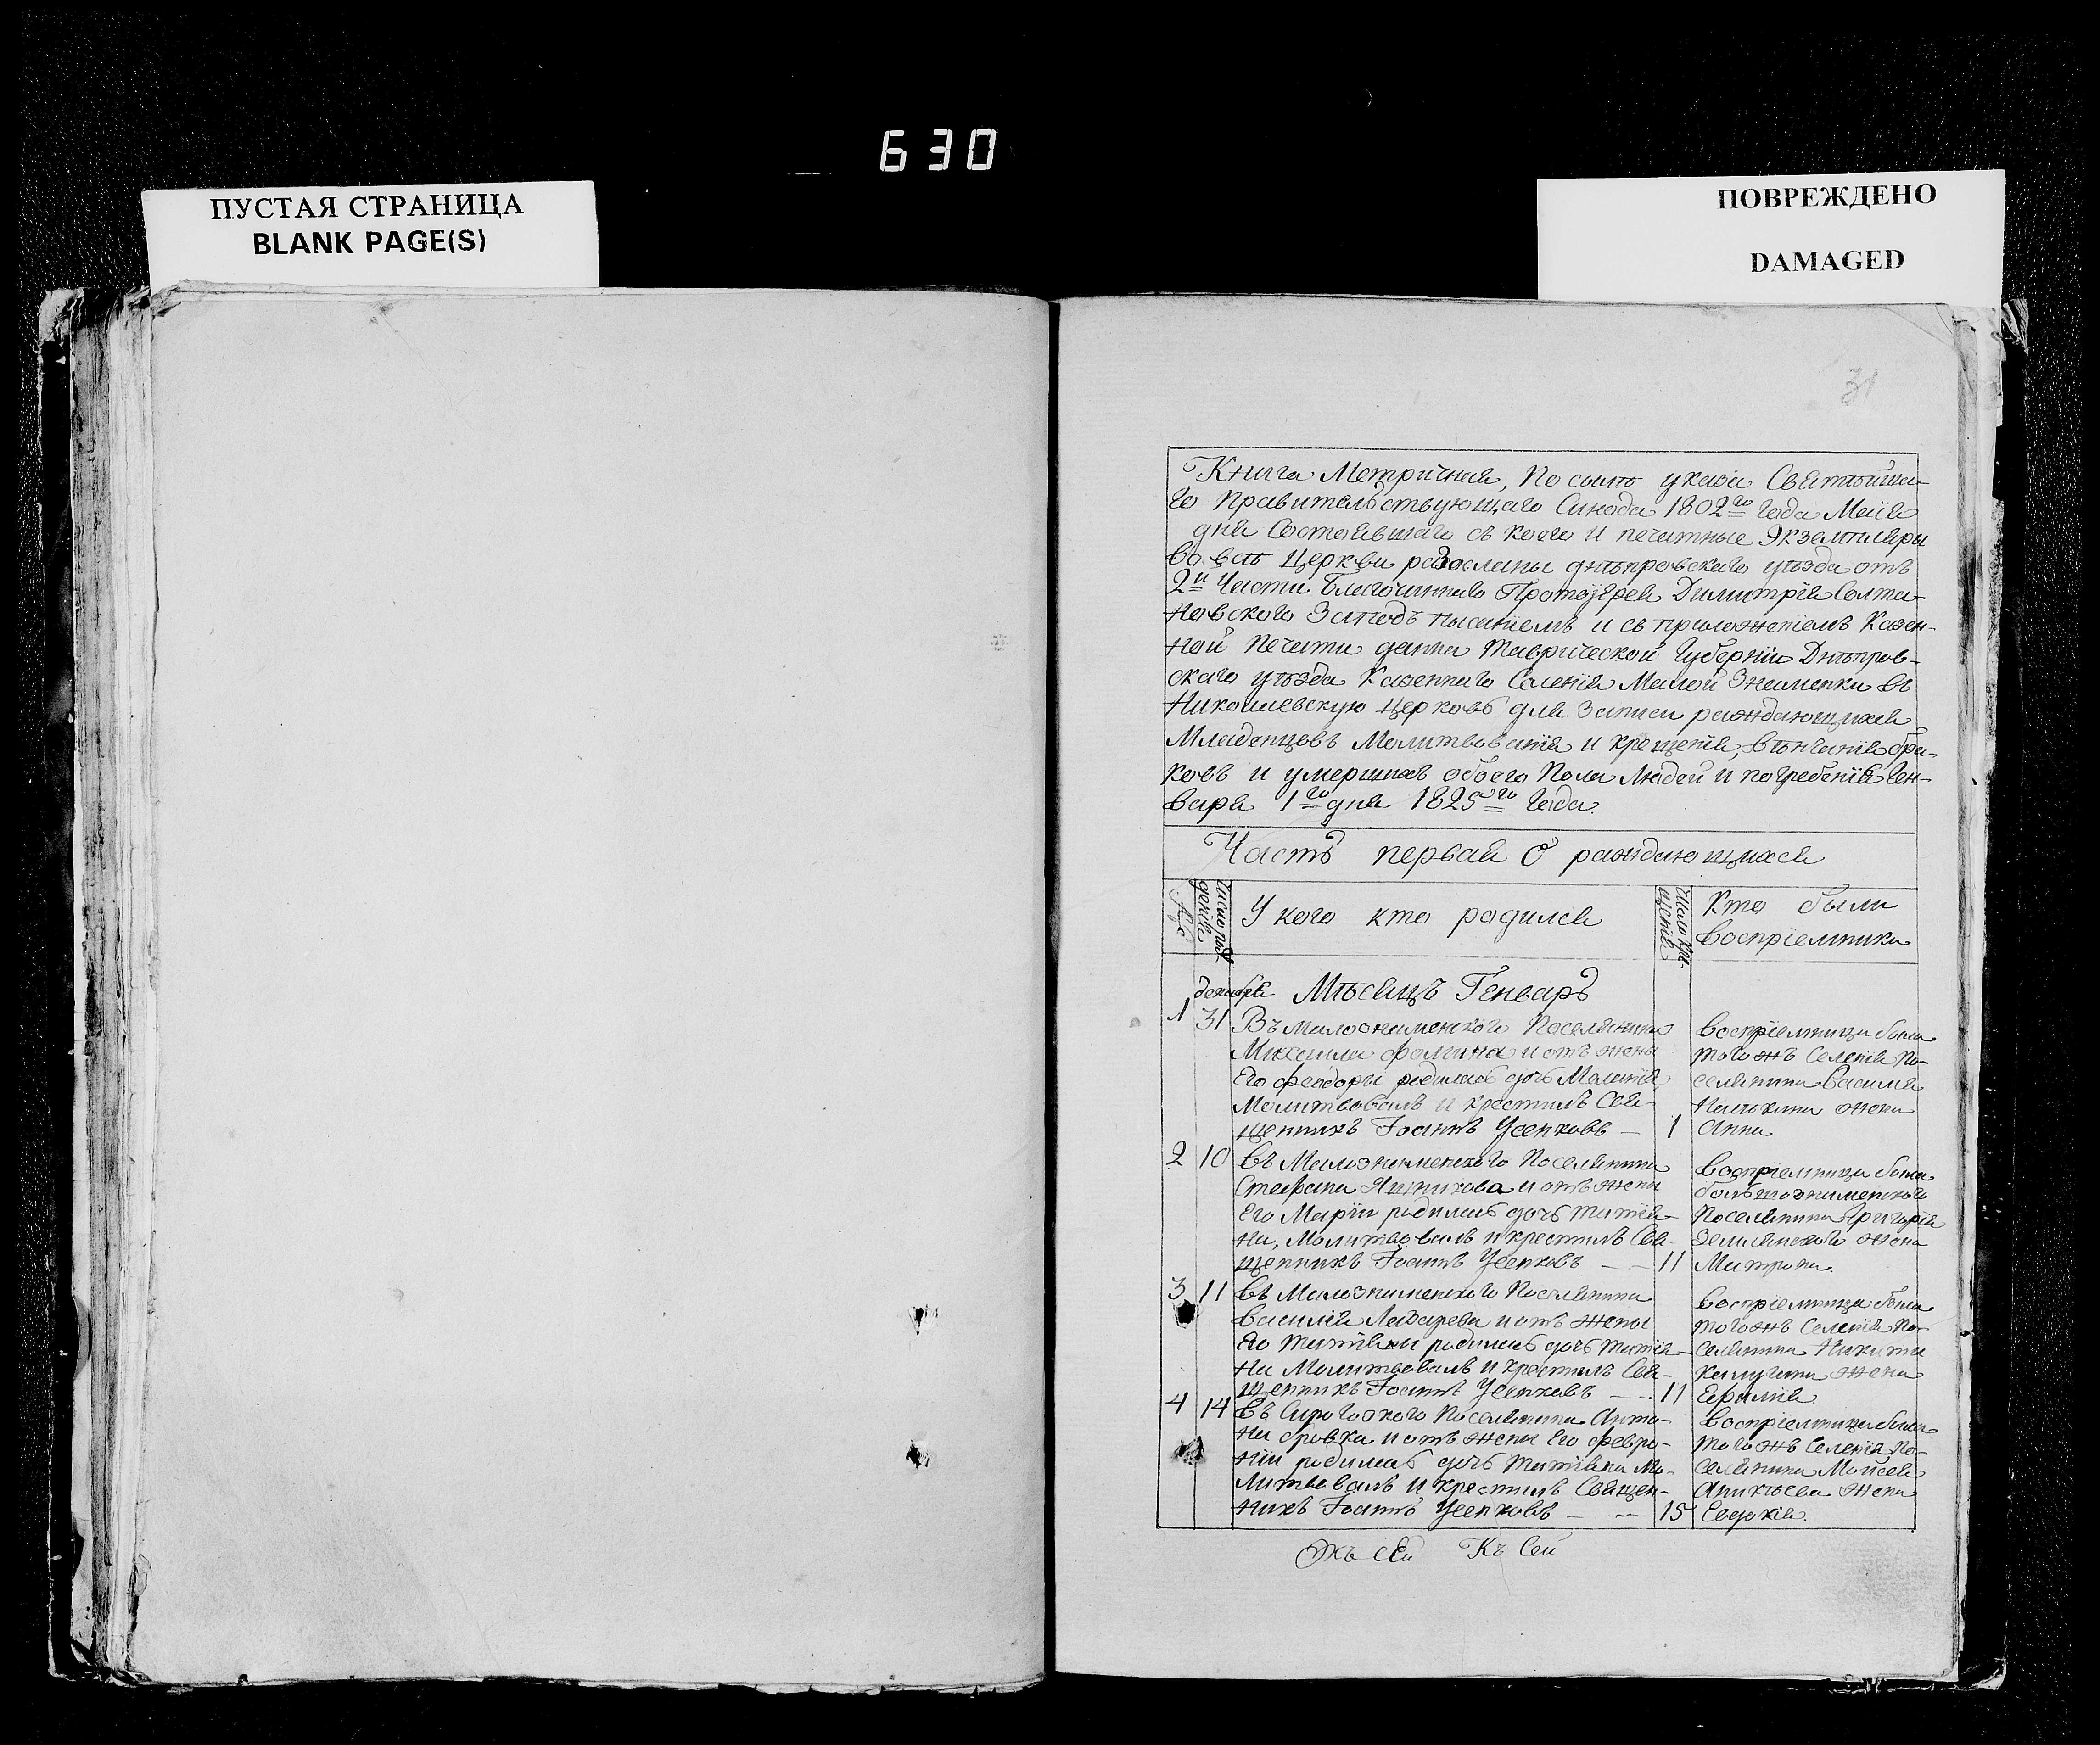 630
ПУСТАЯ СТРАНИЦА
BLANK PAGE(S)
ПОВРЕЖДЕНО
DAMAGED
31
Книга Метричная, По силѣ указа Святѣйша-
го Правительствующаго Синода 1802го года Маія
дня Состоявшаго съ коего и печатные Экземпляры
во всѣ Церкви разосланы днѣпровскаго уѣзда отъ
2й Части Благочиннаго Протоіерея Димитрія Солта-
новского Заподъ писаніемъ и съ приложеніемъ Казен-
ной Печати данна Таврической Губерніи Днѣпров-
скаго уѣзда Казеннаго Селенія Малой Знаменки въ
Николаевскую церковь для Записи раждающихся
Младенцовъ Молитвованія и крещенія, вѣнчанія бра-
ковъ и умершихъ обоего Пола Людей и погребенія Ген-
варя 1го дня 1825го Года.
Часть первая О раждающихся
№
число рож-
денія
У кого кто родился
Число кре-
щенія
Кто были
воспріемники
декабря Мѣсяцъ Генварь
1 31 Въ Малознаменского Поселянина
Михаила Фомина и отъ жены
Его Феодоры родилась дочь Меланія,
Молитвовалъ и крестилъ Свя-
щенникъ Іоаннъ Усенковъ — 1
воспріемница была
того жъ Селенія По-
селянина Василія
жена
Анна
2 10 въ Малознаменского Поселянина
Стефана и отъ жены
Его Маріи родилась дочь татія-
на, Молитвовалъ и крестилъ Свя-
щенникъ Іоаннъ Усенковъ — — 11
Воспріемница была
большознаменского
Поселянина Григорія
Землянского жена
Матрона.
3 11 въ Малознаменского Поселянина
Василія Лазарева и отъ жены
Его татіяны родилась дочь татія-
на Молитвовалъ и крестилъ Свя-
щенникъ Іоаннъ Усенковъ — — 11
воспріемница была
того жъ Селенія По-
селянина Никиты
Калугина жена
4 14 въ Поселянина Анто-
на и отъ жены Его февро-
ніи родилась дочь татіяна Мо-
литвовалъ и крестилъ Священ-
никъ Іоаннъ Усенковъ — — 15
воспріемница была
того жъ Селенія По-
селянина Моисея
жена
Евдокія.
Къ Сей